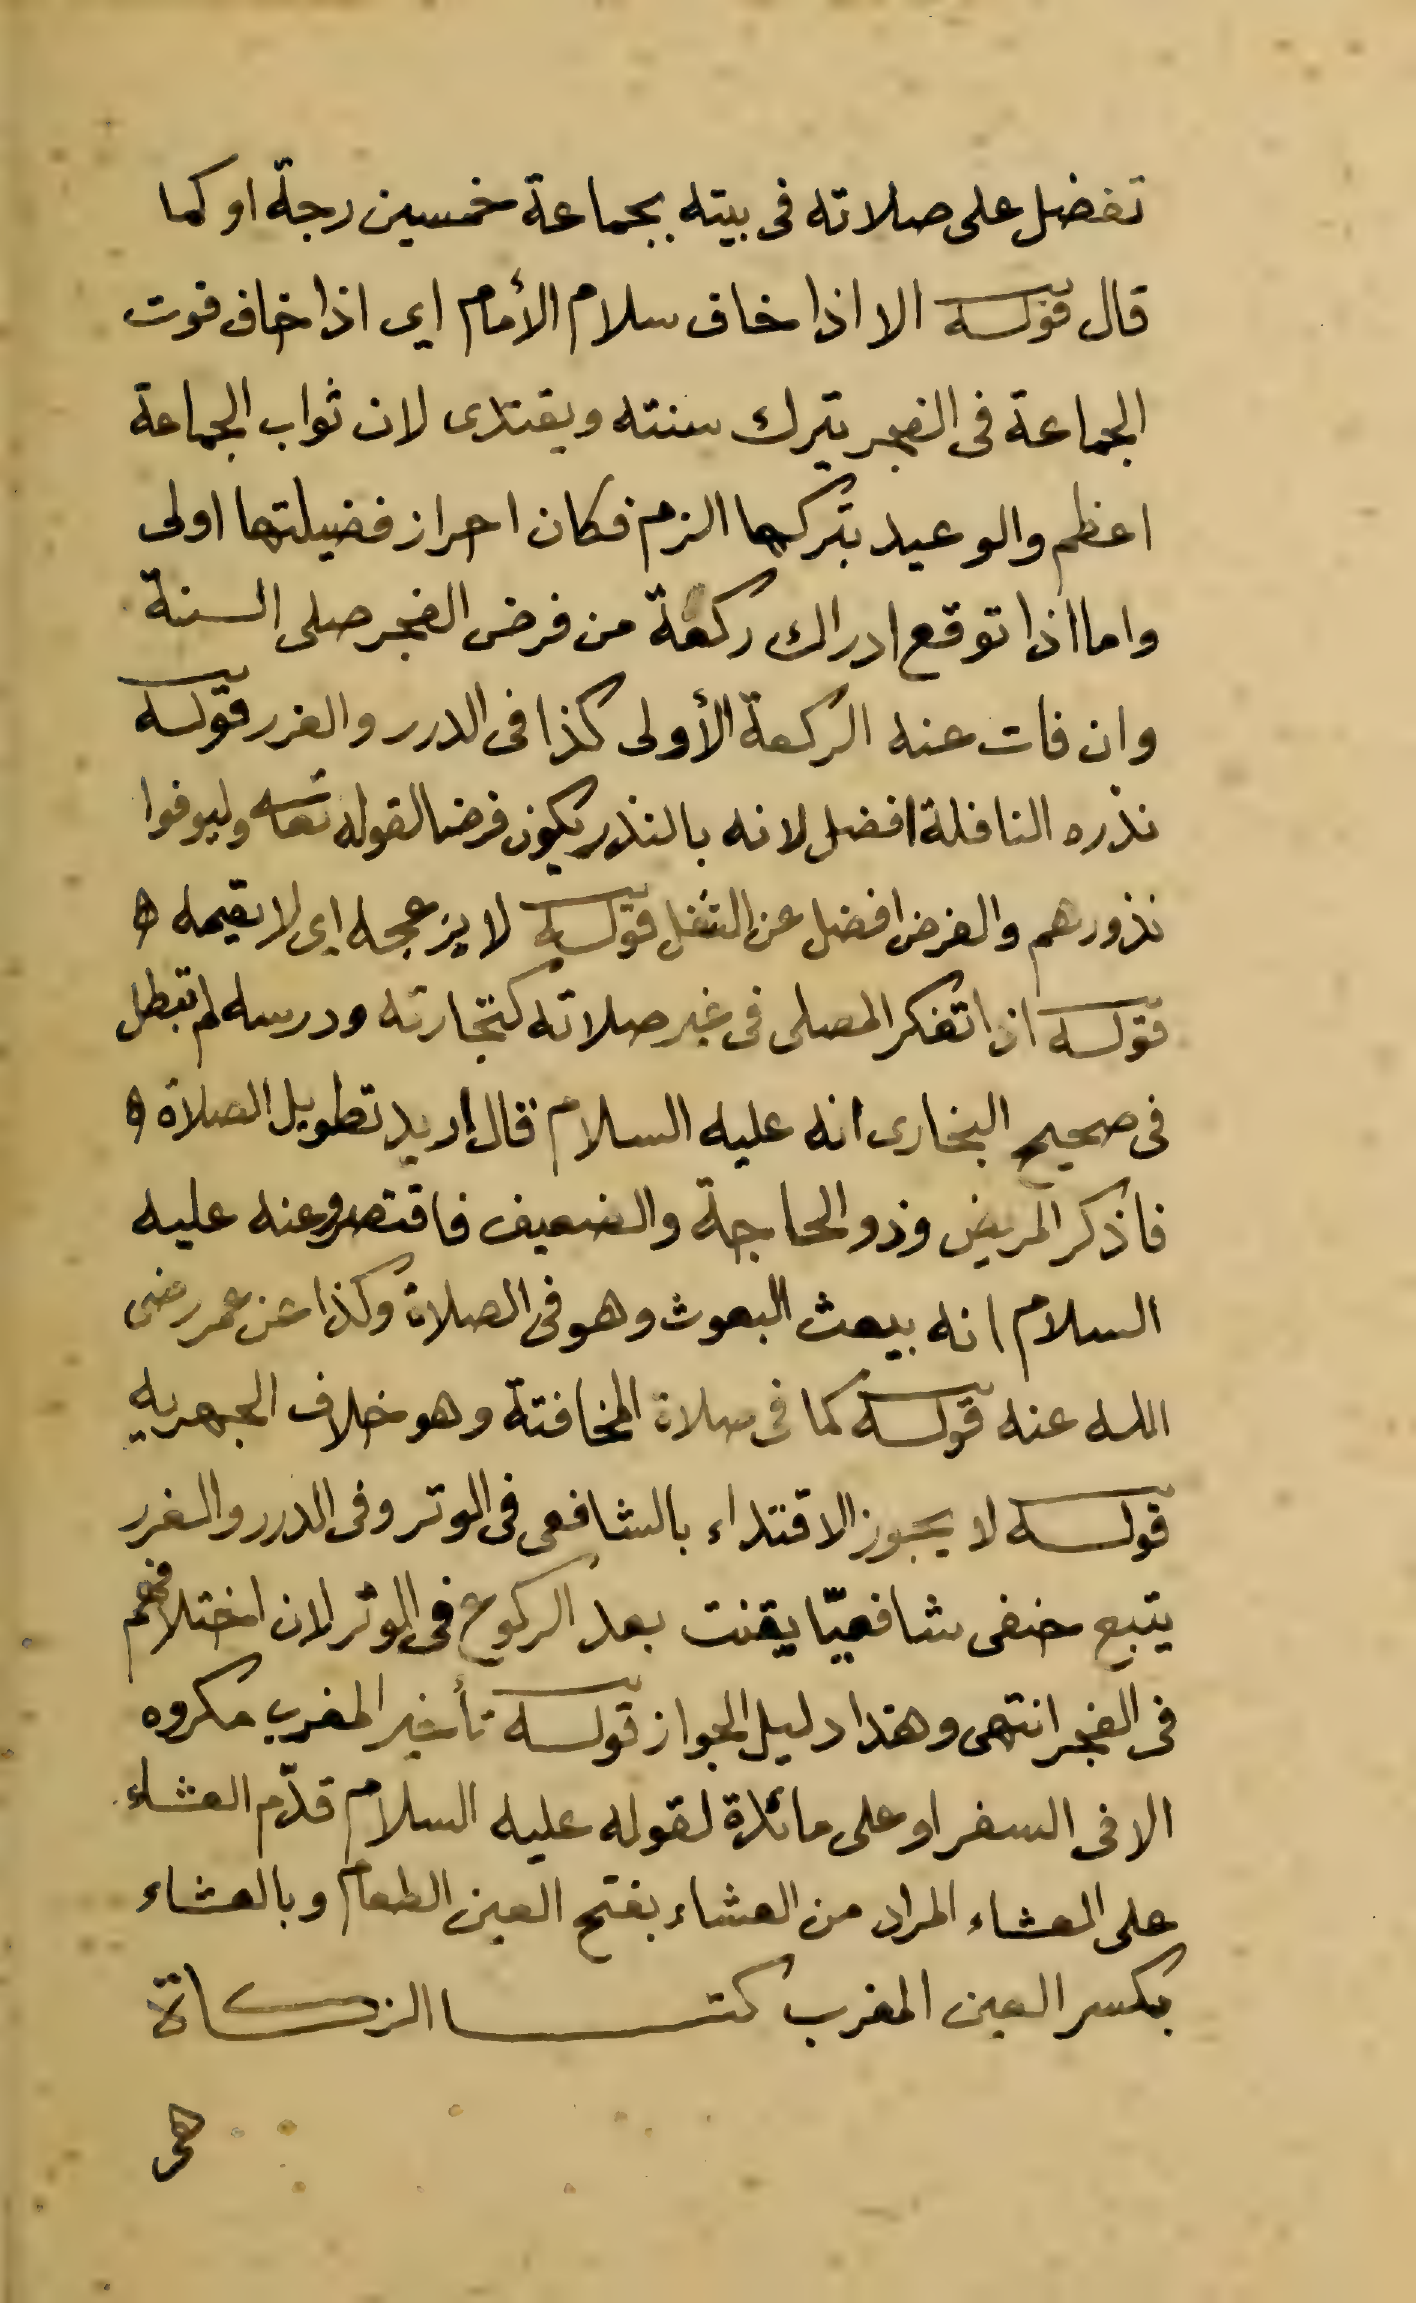 تفضل على صلاته فى بيته بجماعة خمسين رجة او كما
قال قوله الا اذا خاف سلام الأمام اى اذا خاف فوت
الجماعة فى الفجر يترك سنته ويقتدى لان ثواب الجماعة
اعظم والوعيد بتركها الزم فكان احراز فضيلتها اولى
واما اذا توقع ادراك ركعة من فرض الفجر صلى السنة
وان فات عنه الركعة الأولى كذا فى الدرر والغرر قوله
نذره النافلة افضل لانه بالنذر يكون فرضا لقوله تعا وليوفوا
نذورهم والفرض افضل عن النفل قوله لا يزعجه اى لا يقيمه ه
قوله اذا تفكر المصلى فى غير صلاته كتجارته ودرسه لم تبطل
فى صحيح البخارى انه عليه السلام قال اريد تطويل الصلاة ه
فاذكر المريض وذو الحاجة والضعيف فاقتصر وعنه عليه
السلام انه يبعث البعوث وهو فى الصلاة وكذا عن عمر رضى
الله عنه قوله كما فى صلاة المخافتة وهو خلاف الجهريه
قوله لا يجوز الاقتداء بالشافعى فى الوتر وفى الدرر والغرر
يتبع حنفى شافعيّا يقنت بعد الركوع فى الوتر لان اختلافهم
فى الفجر انتهى وهذا دليل الجواز قوله تأخير المغرب مكروه
الا فى السفر او على مائدة لقوله عليه السلام قدّم العشاء
على العشاء المراد من العشاء بفتح العين الطعام وبالعشاء
بكسر العين المغرب كتا الزكاة
هى